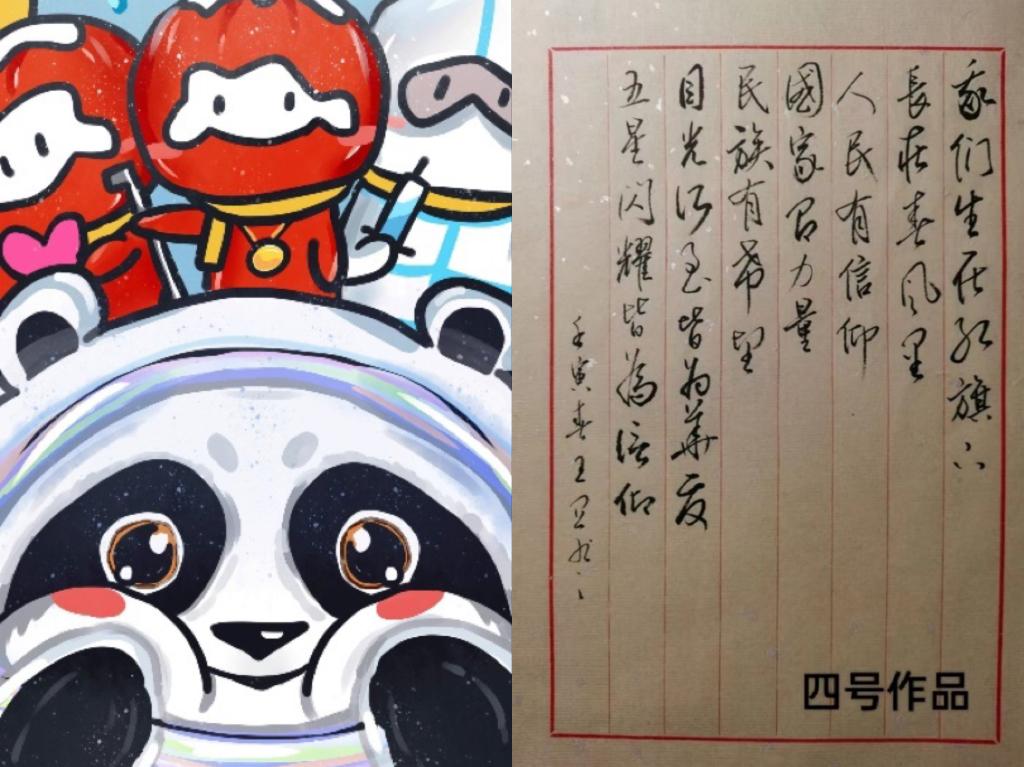 我们生在红旗下
長在春风里
人民有信仰
國家有力量
民族有希望
目光所至皆为華夏
五星闪耀皆為信仰
壬寅春王
四号作品